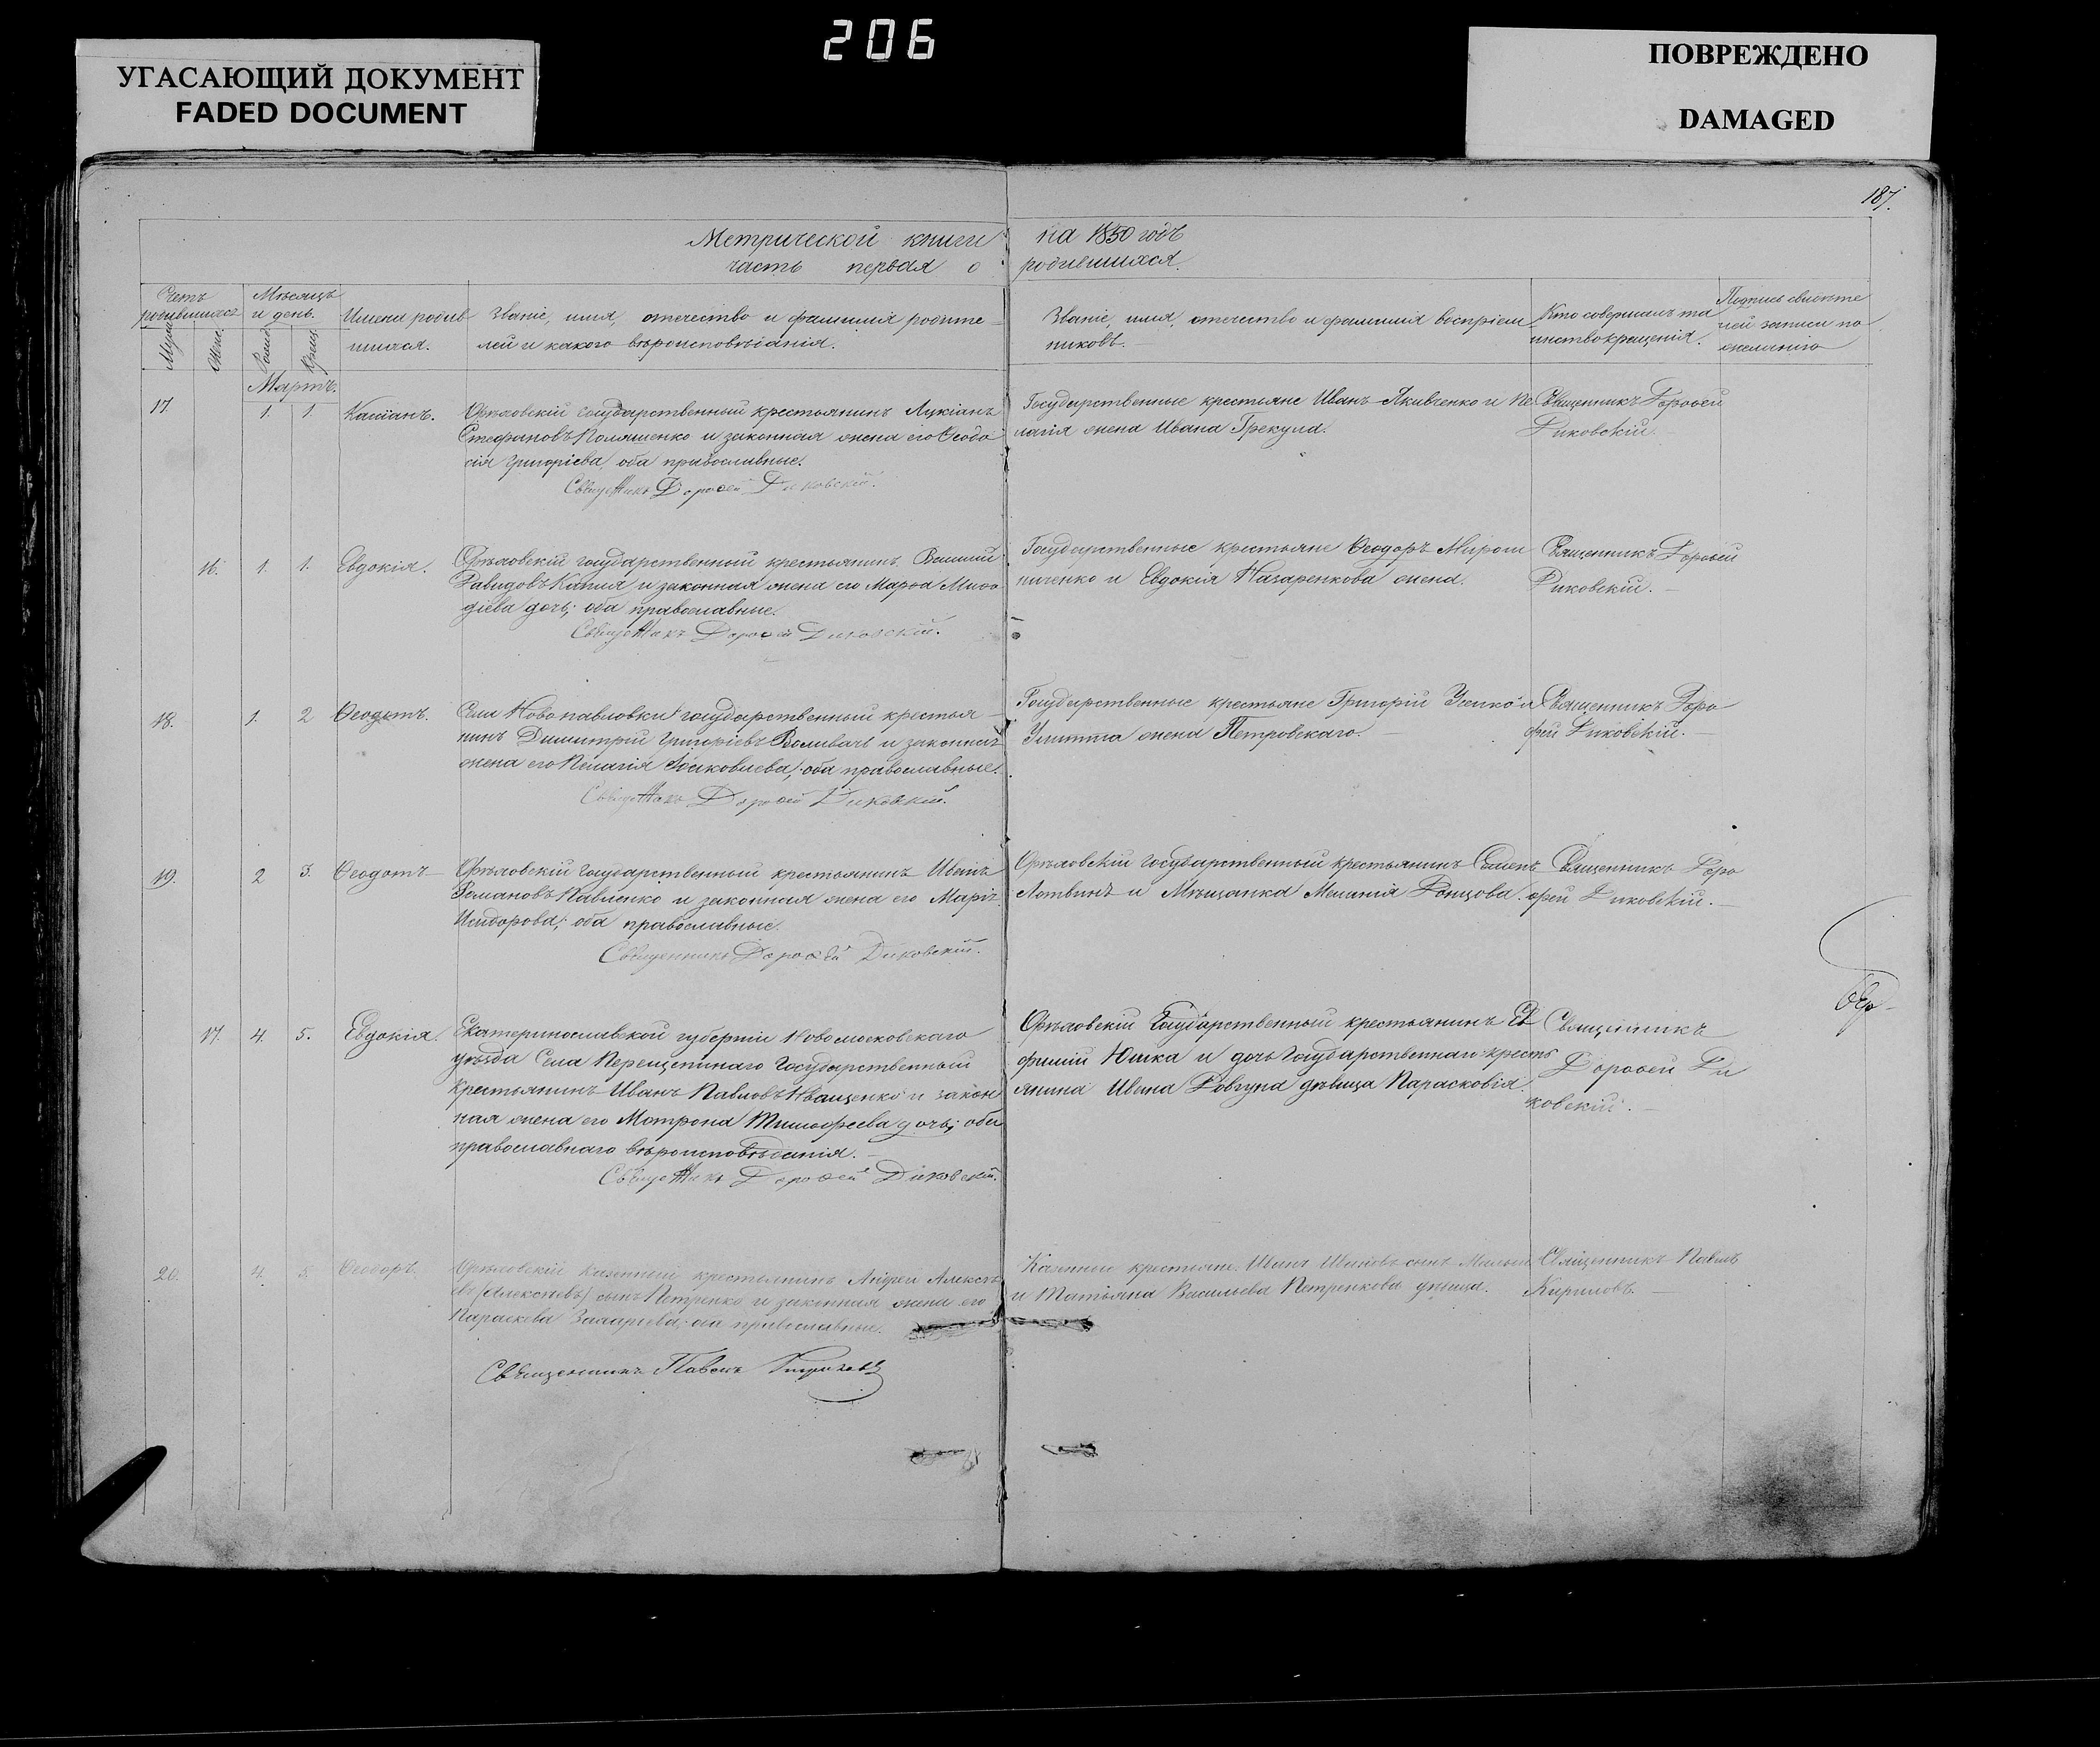 206
УГАСАЮЩИЙ ДОКУМЕНТ
FADED DOCUMENT
ПОВРЕЖДЕНО
DAMAGED
187.
Метрической книги на 1850 годъ
часть первая о родившихся.
Счетъ родившихся
Муж.
Жен.
Мѣсяцъ и день.
Рожд.
Крещ.
Имена родив
шихся.
Званіе, имя, отечество и фамилія родите-
лей и какого вѣроисповѣданія.
Званіе, имя, отечество и фамилія воспріем-
никовъ.
Кто совершалъ та
инство крещенія.
Подпись свидѣте
лей записи по
желанію
Мартъ.
17.
1. 1.
Касіанъ.
Орѣховскій государственный крестьянинъ Лукіанъ
Стефановъ и законная жена его Ѳеодо
сія Григорієва, оба православные.
Священникъ Дороѳей Диковскій.
Государственные крестьяне Иванъ Якивченко и Пе
лагія жена Ивана Грекула.
Священникъ Дороѳей
Диковскій.
16. 1. 1.
Евдокія.
Орѣховскій государственный крестьянинъ Василій
Давидовъ и законная жена его Марѳа Меѳо
діева дочь; оба православные.
Священникъ Дороѳей Диковскій.
Государственные крестьяне Ѳеодоръ Мирош
ниченко и Евдокія Назаренкова жена.
Священникъ Дороѳей
Диковскій.
18. 1. 2
Ѳеодотъ.
Села Новопавловки государственный крестья-
нинъ Димитрій Григорієвъ и законная
жена его Пелагія Іаковлева; оба православные.
Священникъ Дороѳей Диковскій.
Государственные крестьяне Григорій и
Улитта жена Петровскаго.
Священникъ Доро
фей Диковскій.
19. 2 3.
Ѳеодотъ
Орѣховскій государственный крестьянинъ Иванъ
Романовъ Павленко и законная жена его Марія
Исидорова; оба православные.
Священникъ Дороѳей Диковскій.
Орѣховскій государственный крестьянинъ Семенъ
Литвинъ и Мѣщанка Меланія Донцова.
Священникъ Доро
фей Диковскій.
17. 4. 5.
Евдокія.
Екатеринославской губерніи Новомосковскаго
уѣзда Села Перещепинаго Государственный
крестьянинъ Иванъ Павловъ Иващенко и закон
ная жена его Мотрона Тимофеева дочь; оба
православнаго вѣроисповѣданія.
Священникъ Дороѳей Диковскій.
Орѣховскій Государственный крестьянинъ Ев
фимій Юшка и дочь Государственнаго кресть
янина Ивана Довгуна дѣвица Парасковія.
Священникъ
Дороѳей Ди
ковскій.
20. 4. 5.
Ѳеодоръ.
Орѣховскій казенный крестьянинъ Андрей Алексѣ
евъ (Алексѣевъ) сынъ Петренко и законная жена его
Параскева Захаріева; оба православные.
Священникъ Павелъ Кириловъ
Казенные крестьяне Иванъ Ивановъ сынъ
и Татьяна Васильева Петренкова дѣвица.
Священникъ Павелъ
Кириловъ.